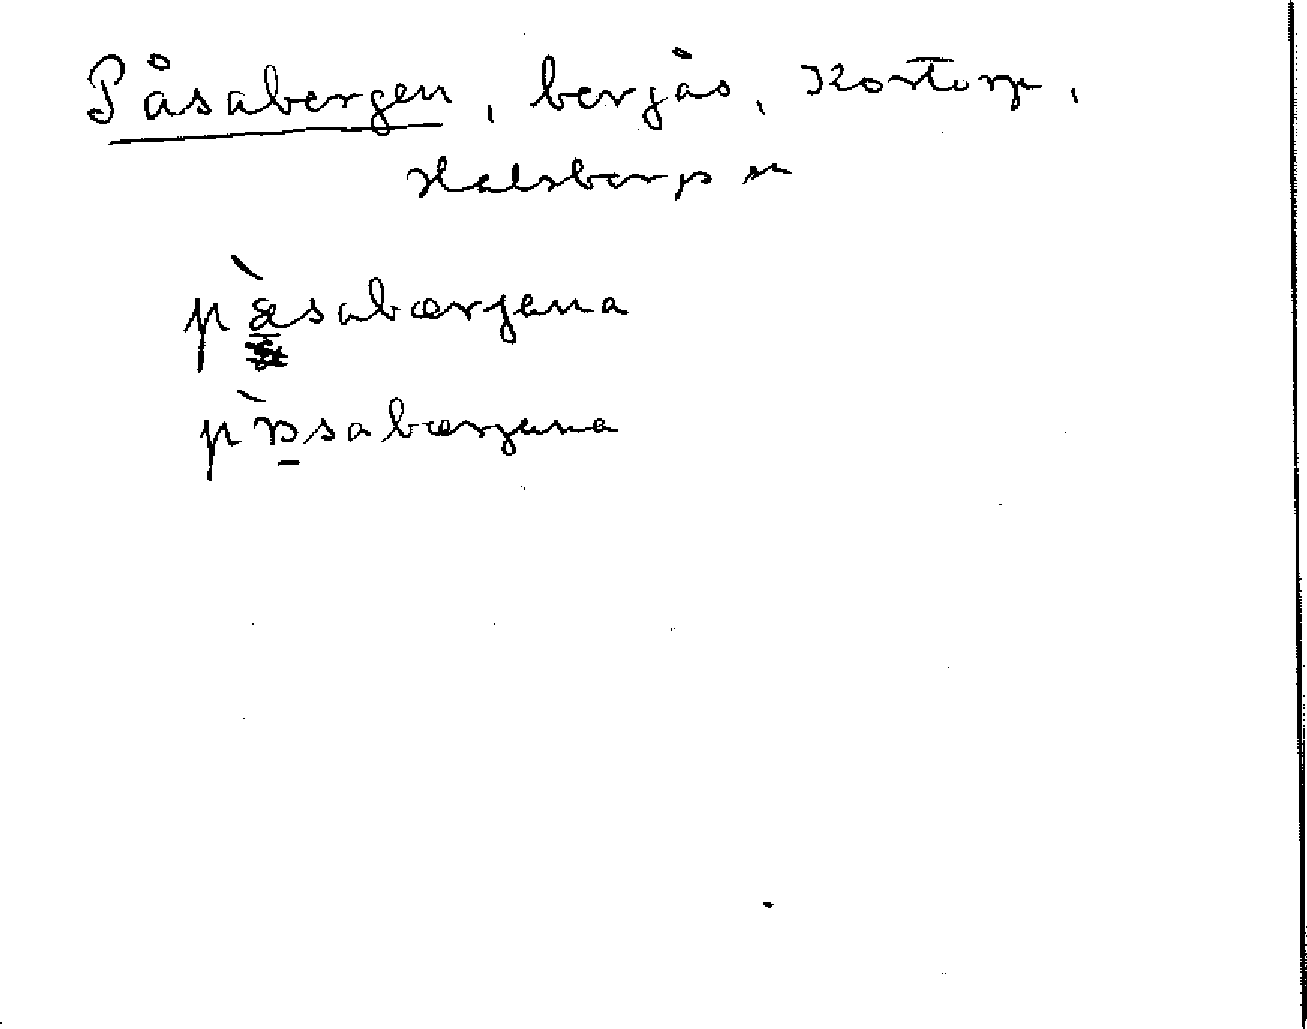 Påsabergen, bergås, Kortorp,
Halsberg sn
påsabærjena
pɒsabærjena